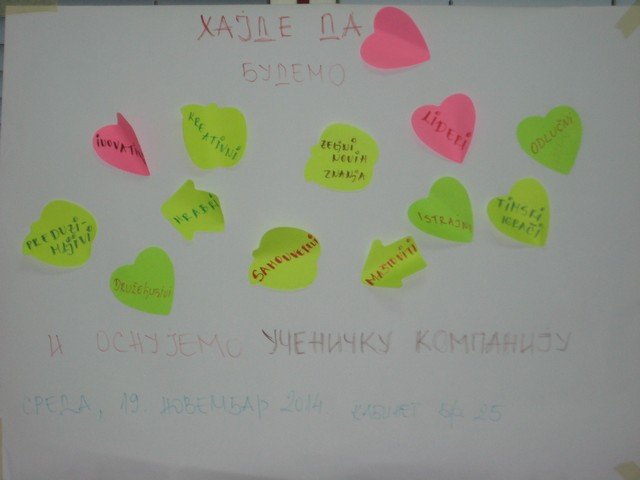 ХАЈДЕ ДА
БУДЕМО
INOVATIVNI
KREATIVNI
ŽELJNI
NOVIH
ZNANJA
LIDERI
ODLUČNI
PREDUZI-
MLJIVI
HRABRI
ISTRAJNI
TIMSKI
IGRAČI
DRUŽELJUBIVI
SAMOUVERENI
MAŠTOVITI
И ОСНУЈЕМО УЧЕНИЧКУ КОМПАНИЈУ
СРЕДА, 19. НОВЕМБАР 2014 КАБИНЕТ БР. 25